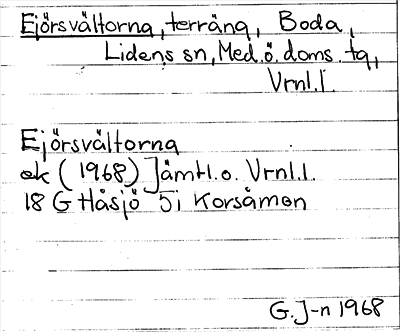 Ejörsvältorna, terräng, Boda,
Lidens sn, Med.ö. doms. tg,
Vrnl.l.
Ejörsvältorna
ek (1968) Jämtl.o. Vrnl.l.
18 G Håsjö 5i Korsåmon
G.J-n 1968